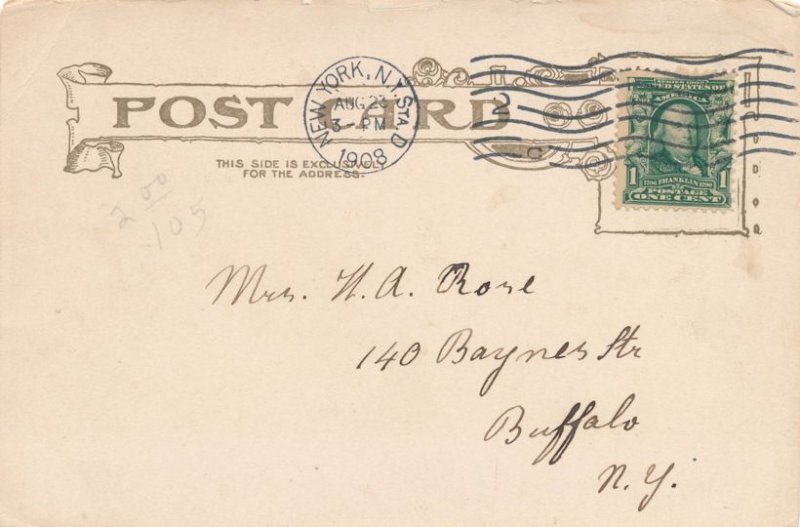 POST CARD
THIS SIDE IS EXCLUSIVELY
FOR THE ADDRESS.
NEW YORK, N.Y. STA. D
AUG 23
3-PM
1908
2
C
SERIES 1902
UNITED STATES OF
AMERICA
1 1
FRANKLIN
POSTAGE
ONE CENT
2 00
105
Mrs. H. A. Rose
140 Baynes Str
Buffalo
N. Y.